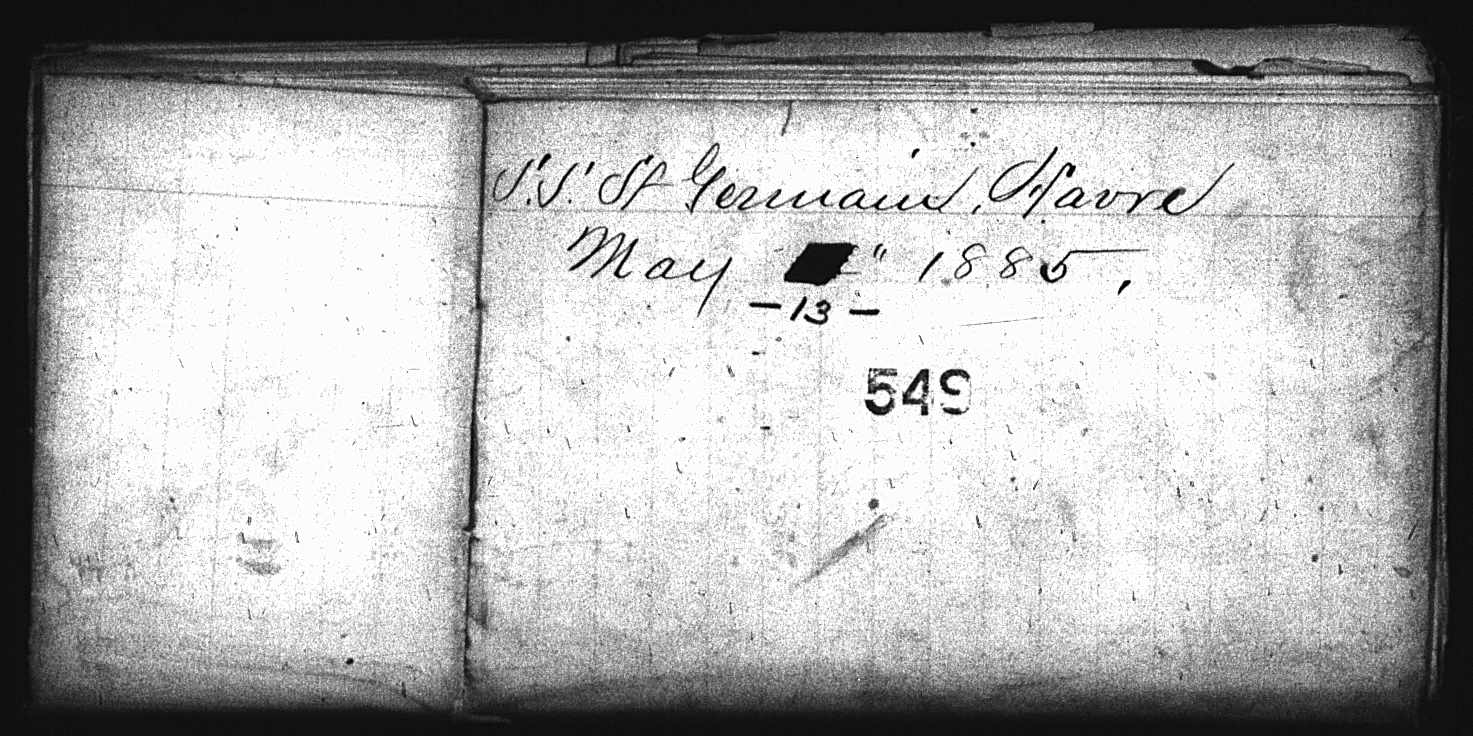 S.S. St Germain, Havre
May " 1885,
- 13 -
549